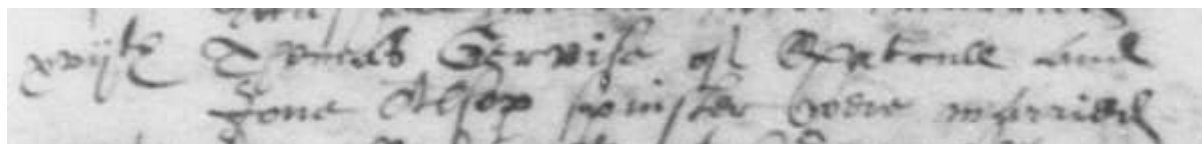 xvijth Thomas Gervise of and
Jone Alsop spinster were married